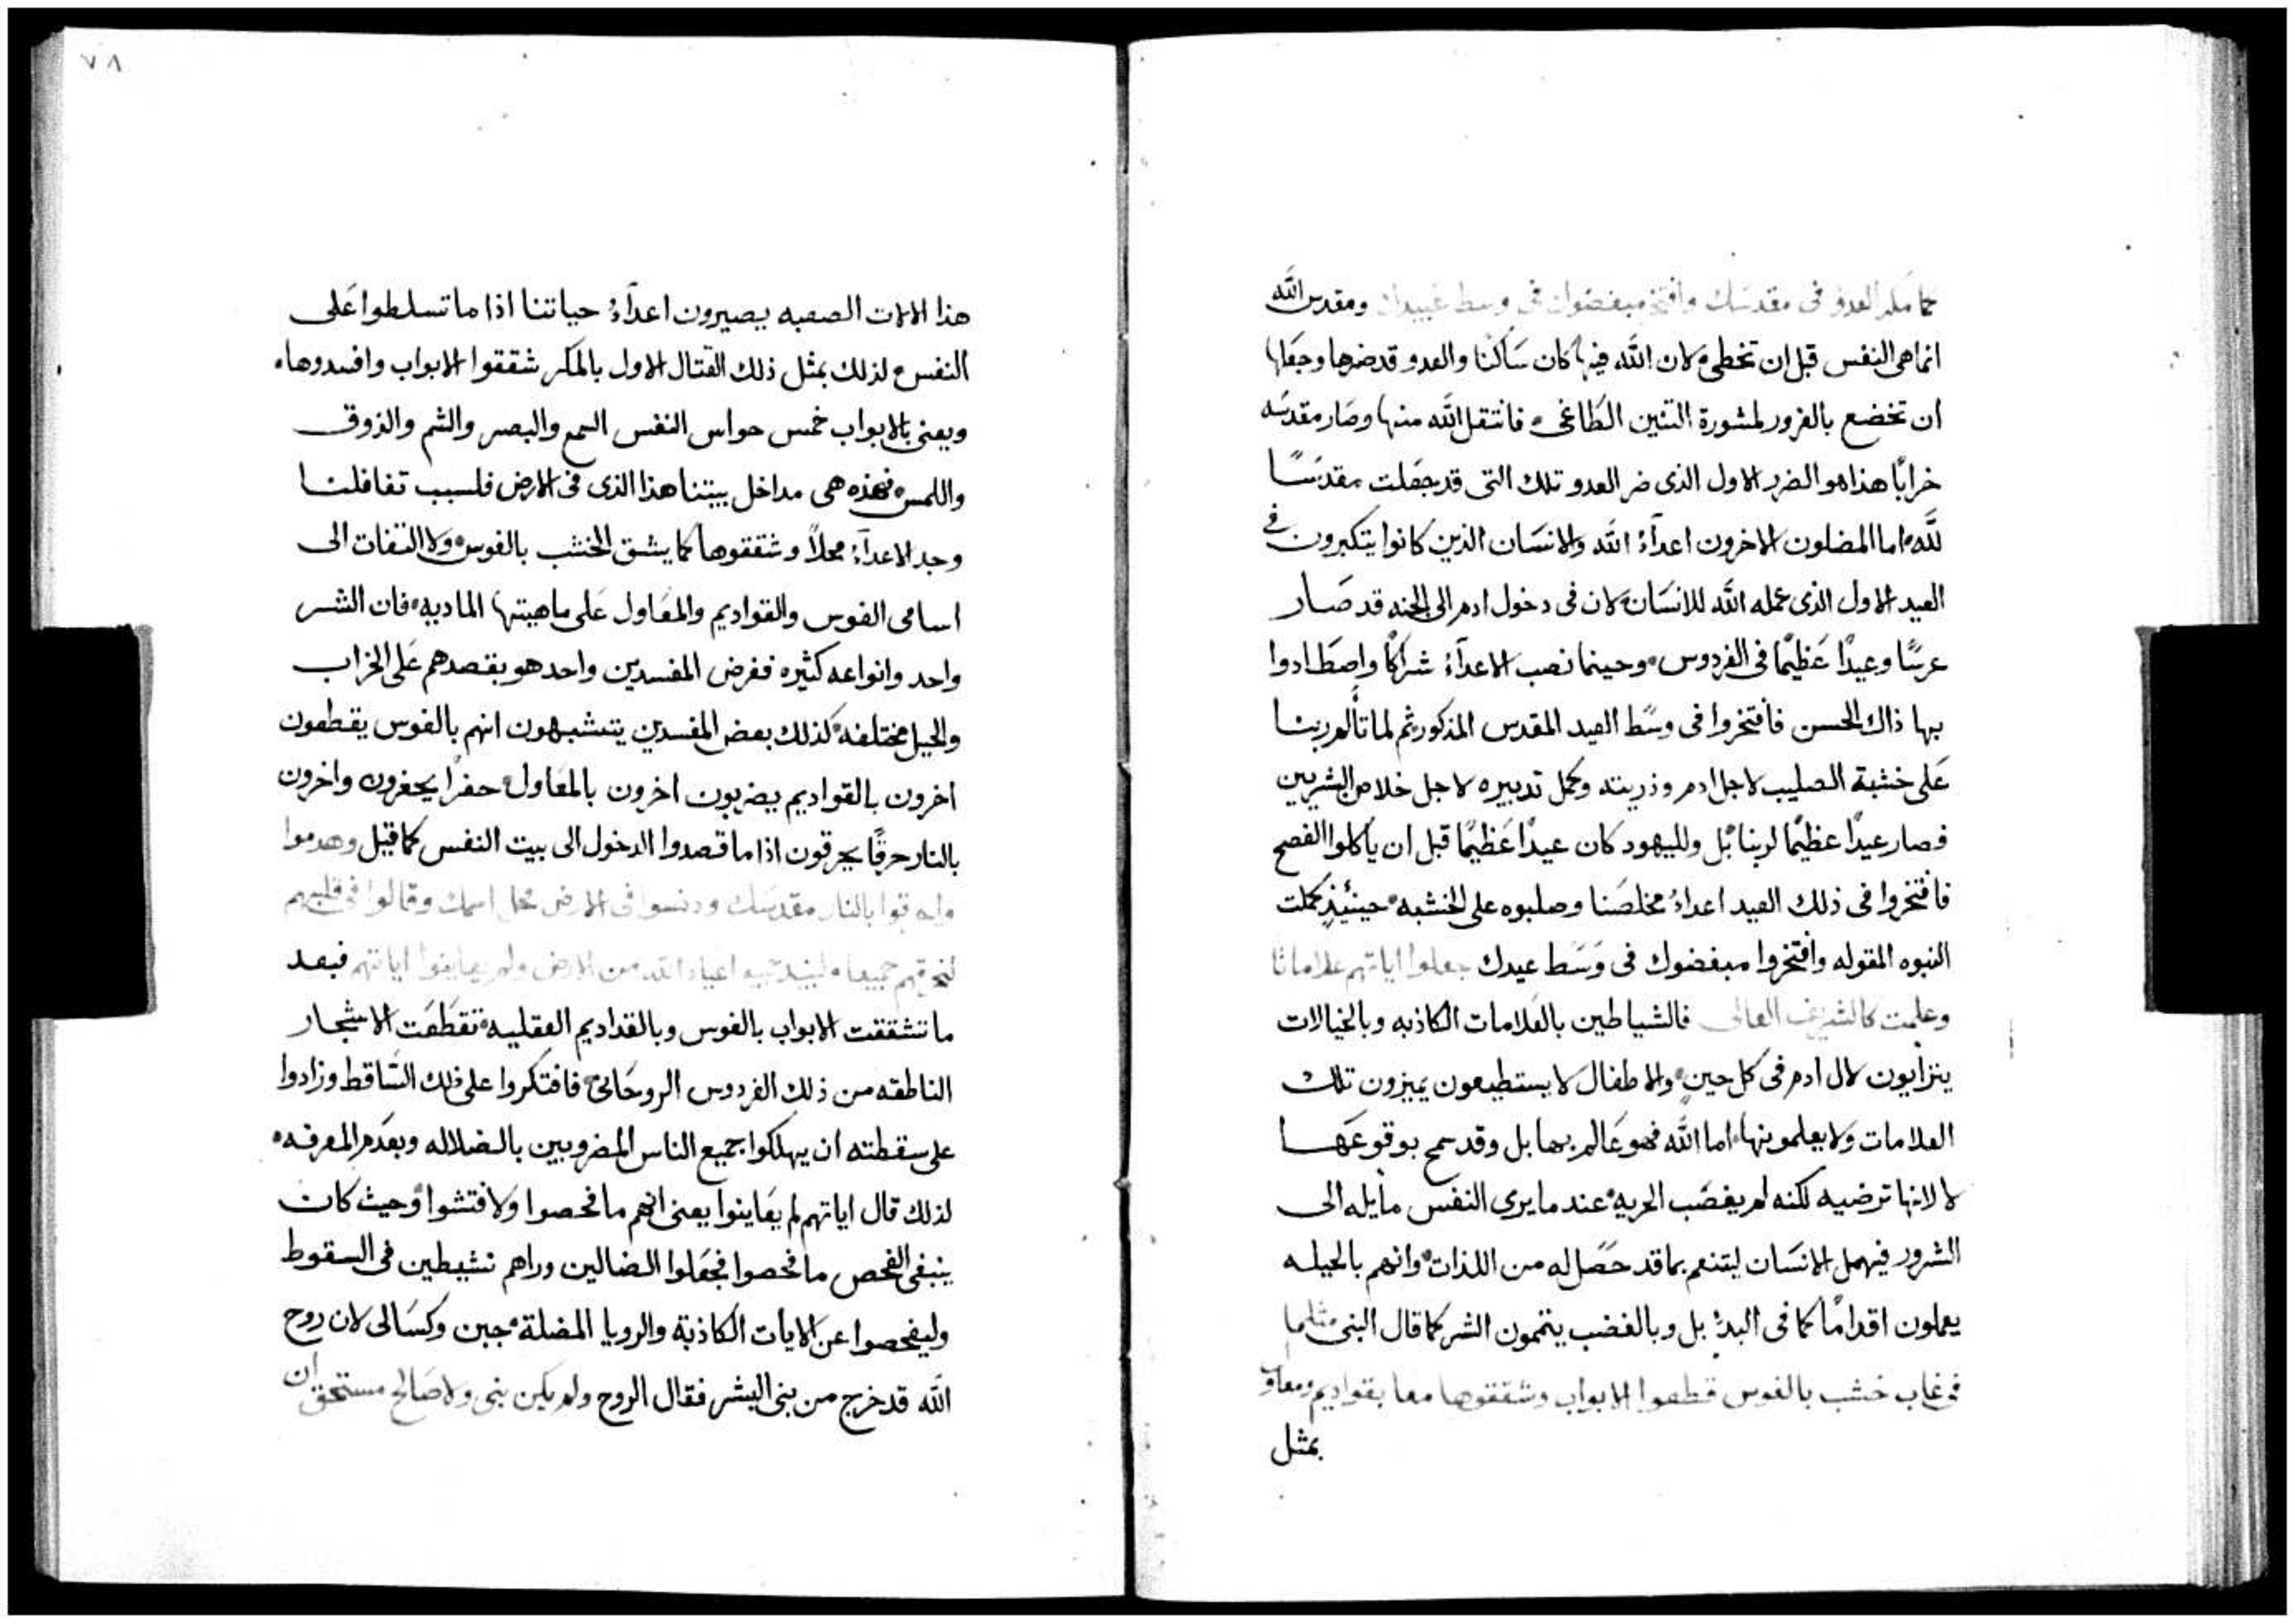 كما مكر العدو فى مقدسك وافتخر مبغضوك فى وسط عييدك ومقدس الله
انما هى النفس قبل ان تخطى لان الله فيها كان ساكنًا والعدو قد ضرها وجعلها
ان تخضع بالغرور لمشورة التنين الطاغى فانتقل الله منها وصار مقدسه
خرابًا هذا هو الضرر الاول الذى ضر العدو تلك التى قد جعلت مقدسًا
لله اما المضلون الاخرون اعدآء الله والانسان الذين كانوا يتكبرون فى
العيد الاول الذى عمله الله للانسان لان فى دخول ادم الى الجنه قد صار
عرسًا وعيدًا عظيمًا فى الفردوس وحينما نصب الاعدآء شراكًا واصطادوا
بها ذاك الحسن فافتخروا فى وسط العيد المقدس المذكور ثم لما تألم ربنا
على خشبة الصليب لاجل ادم وذريته وكمل تدبيره لاجل خلاص البشريين
فصار عيدًا عظيمًا لربنا بل ولليهود كان عيدًا عظيمًا قبل ان ياكلوا الفصح
فافتخروا فى ذلك العيد اعداء مخلصنا وصلبوه على الخشبه حينئذٍ كملت
النبوه المقوله وافتخروا مبغضوك فى وسط عيدك جعلوا اياتهم علامانًا
وعلمت كالشريف العالى فالشياطين بالعلامات الكاذبه وبالخيالات
يتزايون لال ادم فى كل حينٍ والاطفال لا يستطيعون يميزون تلك
العلامات ولا يعلمونها اما الله فهو عالم بها بل وقد سمح بوقوعها
لا لانها ترضيه لكنه لم يغصب الحريه عند ما يرى النفس مايله الى
الشرور فيهمل الانسان ليتنعم بما قد حصل له من اللذات وانهم بالحيله
يعملون اقدامًا كما فى البدء بل وبالغضب يتممون الشر كما قال النبى مثلما
فى غاب خشب بالفوس قطعوا الابواب وشققوها معا بقواديم ومعاول
بمثل
٧٨
هذا الالات الصعبه يصيرون اعدآء حياتنا اذا ما تسلطوا على
النفس لذلك بمثل ذلك القتال الاول بالمكر شققوا الابواب وافسدوها
ويعنى بالابواب خمس حواس النفس السمع والبصر والشم والذوق
واللمس فهذه هى مداخل بيتنا هذا الذى فى الارض فلسبب تغافلنا
وجد الاعدآء محلاً وشققوها كما يشق الخشب بالفوس ولا التفات الى
اسامى الفوس والقواديم والمعاول على ماهيتها الماديه فان الشر
واحد وانواعه كثيره فغرض المفسدين واحد هو بقصدهم على الخراب
والحيل مختلفه كذلك بعض المفسدين يتشبهون انهم بالفوس يقطعون
اخرون بالقواديم يضربون اخرون بالمعاول حفرًا يحفرون واخرون
بالنار حرقًا يحرقون اذا ما قصدوا الدخول الى بيت النفس كما قيل وهدموا
واحرقوا بالنار مقدسك ودنسوا فى الارض محل اسمك وقالوا فى قلبهم
لنحرقهم جميعا ولنبيد جميع اعياد الله من الارض ولم يعاينوا اياتهم فبعد
ما تشققت الابواب بالفوس وبالقداديم العقليه تقطعت الاشجار
الناطقه من ذلك الفردوس الروحانى فافتكروا على ذلك الساقط وزادوا
على سقطته ان يهلكوا جميع الناس المضروبين بالضلاله وبعدم المعرفه
لذلك قال اياتهم لم يعاينوا يعنى انهم ما فحصوا ولا فتشوا وحيث كان
ينبغى الفحص ما فحصوا فجعلوا الضالين وراهم نشيطين فى السقوط
وليفحصوا عن الايات الكاذبة والرويا المضلة جبن وكسالى لان روح
الله قد خرج من بنى البشر فقال الروح ولم يكن نبى ولا صالح مستحق ان